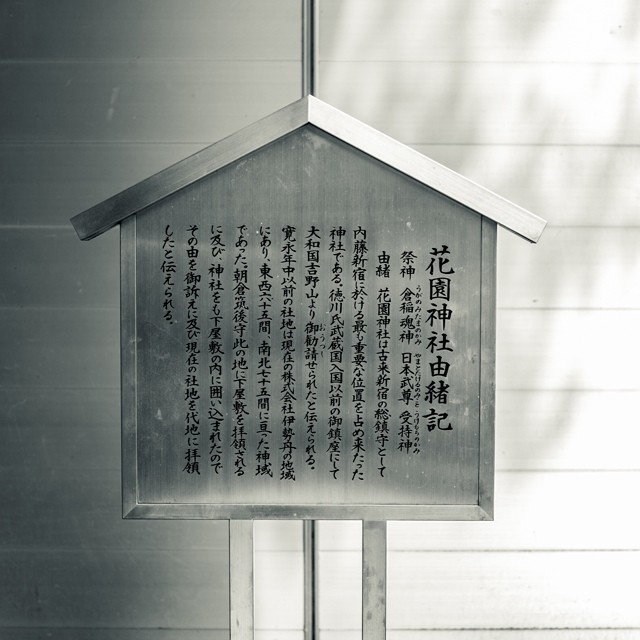 花園神社由緒記
祭神　倉稲魂神　日本武尊　受持神
うかのみたまのかみ　やまとたけるのみこと　うけもちのかみ
由緒　花園神社は古来新宿の総鎮守として
内藤新宿に於ける最も重要な位置を占め来たった
神社である。徳川氏武蔵国入国以前の御鎮座にして
大和国吉野山より御勧請せられたと伝えられる。
寛永年中以前の社地は現在の株式会社伊勢丹の地域
にあり、東西六十五間、南北七十五間に亘った神域
であった。朝倉筑後守此の地に下屋敷を拝領される
に及び、神社をも下屋敷の内に囲い込まれたので
その由を御訴えに及び現在の社地を代地に拝領
したと伝えられる。